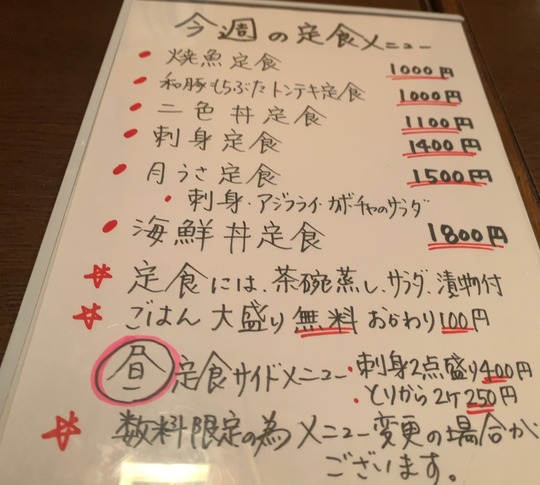 今週の定食メニュー
・焼魚定食 1000円
・和豚もちぶたトンテキ定食 1000円
・二色丼定食 1100円
・刺身定食 1400円
・月うさ定食 1500円
・刺身・アジフライ・カボチャのサラダ
・海鮮丼定食 1800円
☆定食には、茶碗蒸し、サラダ、漬物付
☆ごはん大盛り無料 おかわり100円
昼定食サイドメニュー・刺身2点盛り400円
・とりから2ケ250円
☆数料限定の為メニュー変更の場合が
ございます。